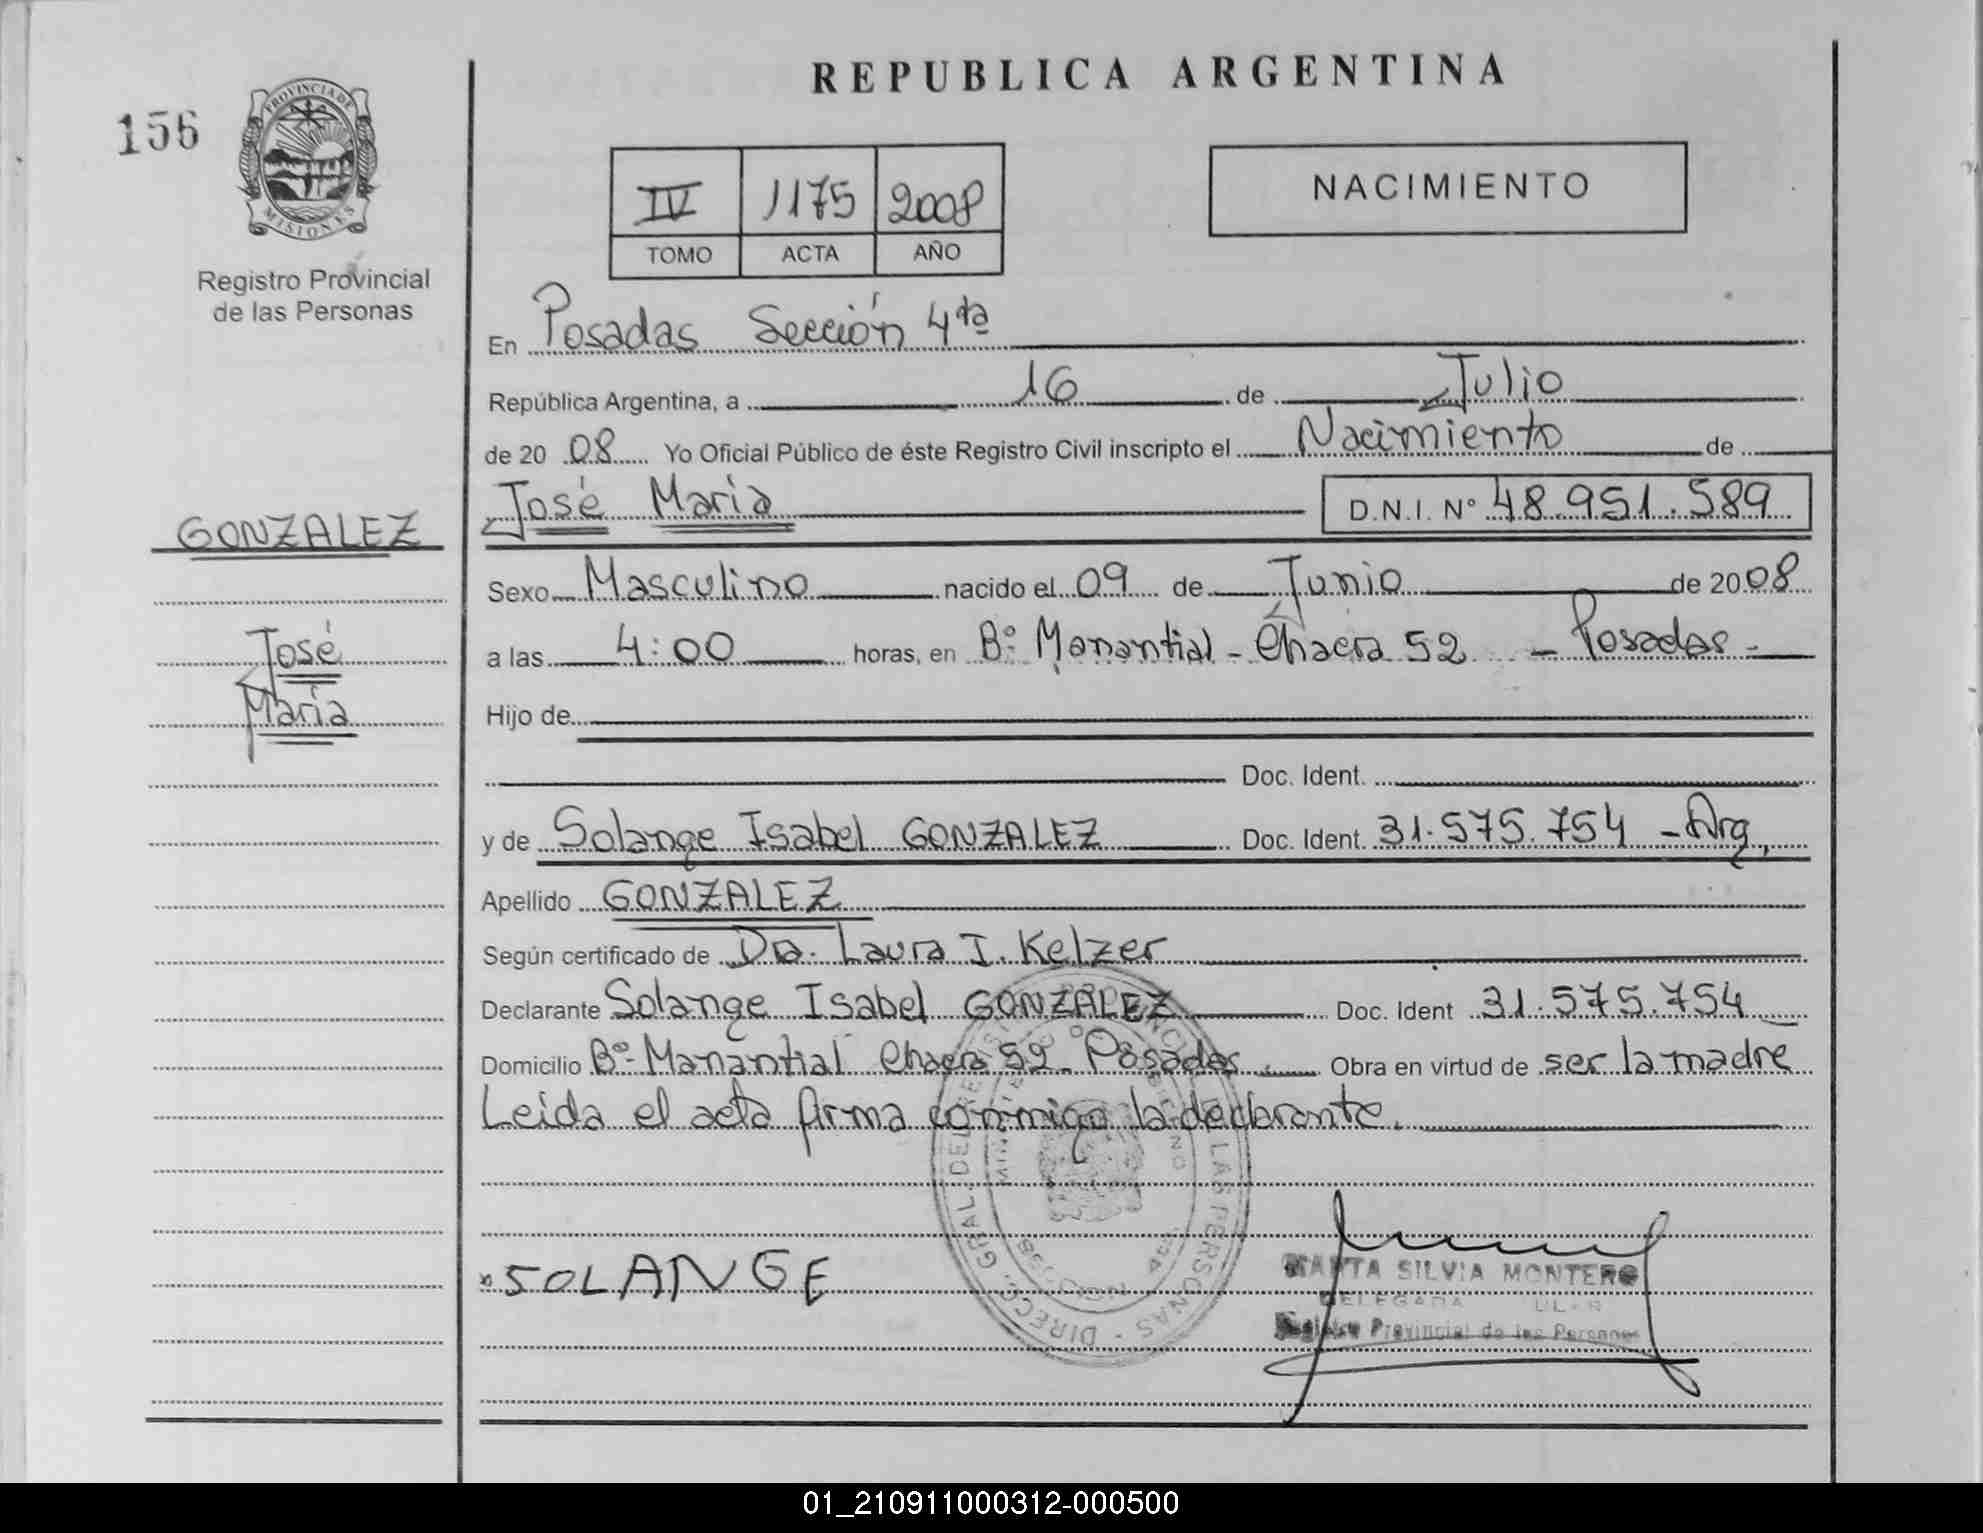 REPUBLICA ARGENTINA
156
PROVINCIA DE
MISIONES
Registro Provincial
de las Personas
IV 1175 2008
TOMO ACTA AÑO
NACIMIENTO
En Posadas Sección 4ta
República Argentina, a 16 de Julio
de 20 08 Yo Oficial Público de éste Registro Civil inscripto el Nacimiento de
José María D.N.I. N° 48.951.589
GONZALEZ
Sexo Masculino nacido el 09 de Junio de 2008
José
María
a las 4:00 horas, en B°: Manantial - Chacra 52 - Posadas -
Hijo de
Doc. Ident.
y de Solange Isabel GONZALEZ Doc. Ident. 31.575.754 - Arg.
Apellido GONZALEZ
Según certificado de Dra. Laura I. Kelzer
Declarante Solange Isabel GONZALEZ Doc. Ident 31.575.754
Domicilio B°- Manantial Chacra 52 - Posadas. Obra en virtud de ser la madre
Leida el acta firma conmigo la declarante.
SOLANGE
MARTA SILVIA MONTERO
DELEGADA
Registro Provincial de las Personas
01_210911000312-000500